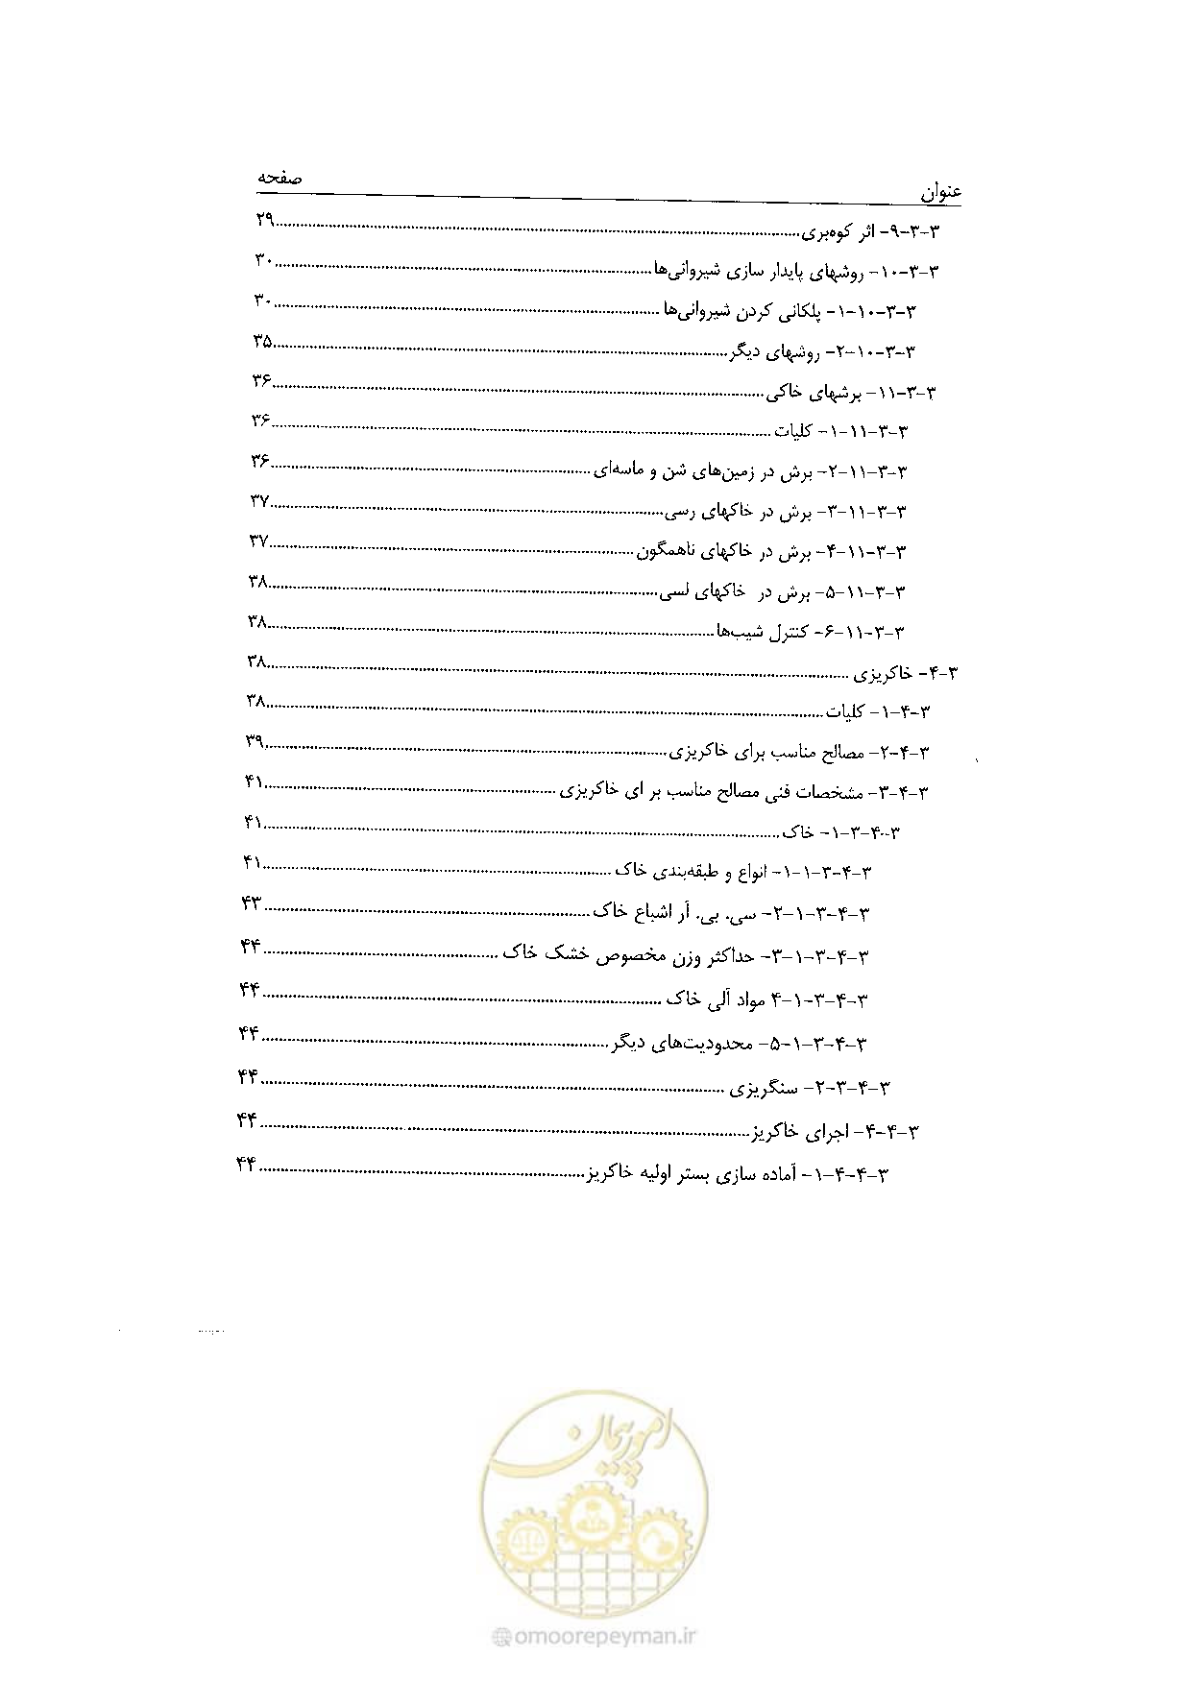 عنوان صفحه
۳-۳-۹- اثر کوه‌بری........................................۲۹
۳-۳-۱۰- روشهای پایدار سازی شیروانی‌ها........................................۳۰
۳-۳-۱۰-۱- پلکانی کردن شیروانی‌ها ........................................۳۰
۳-۳-۱۰-۲- روشهای دیگر........................................۳۵
۳-۳-۱۱- برشهای خاکی ........................................۳۶
۳-۳-۱۱-۱- کلیات ........................................۳۶
۳-۳-۱۱-۲- برش در زمین‌های شن و ماسه‌ای ........................................۳۶
۳-۳-۱۱-۳- برش در خاکهای رسی........................................۳۷
۳-۳-۱۱-۴- برش در خاکهای ناهمگون ........................................۳۷
۳-۳-۱۱-۵- برش در خاکهای لسی........................................۳۸
۳-۳-۱۱-۶- کنترل شیب‌ها........................................۳۸
۳-۴- خاکریزی ........................................۳۸
۳-۴-۱- کلیات ........................................۳۸
۳-۴-۲- مصالح مناسب برای خاکریزی........................................۳۹
۳-۴-۳- مشخصات فنی مصالح مناسب بر ای خاکریزی ........................................۴۱
۳-۴-۳-۱- خاک ........................................۴۱
۳-۴-۳-۱-۱- انواع و طبقه‌بندی خاک ........................................۴۱
۳-۴-۳-۱-۲- سی. بی. آر اشباع خاک ........................................۴۳
۳-۴-۳-۱-۳- حداکثر وزن مخصوص خشک خاک ........................................۴۴
۳-۴-۳-۱-۴ مواد آلی خاک ........................................۴۴
۳-۴-۳-۱-۵- محدودیت‌های دیگر........................................۴۴
۳-۴-۳-۲- سنگریزی ........................................۴۴
۳-۴-۴- اجرای خاکریز........................................۴۴
۳-۴-۴-۱- آماده سازی بستر اولیه خاکریز........................................۴۴
امور پیمان
@omoorepeyman.ir